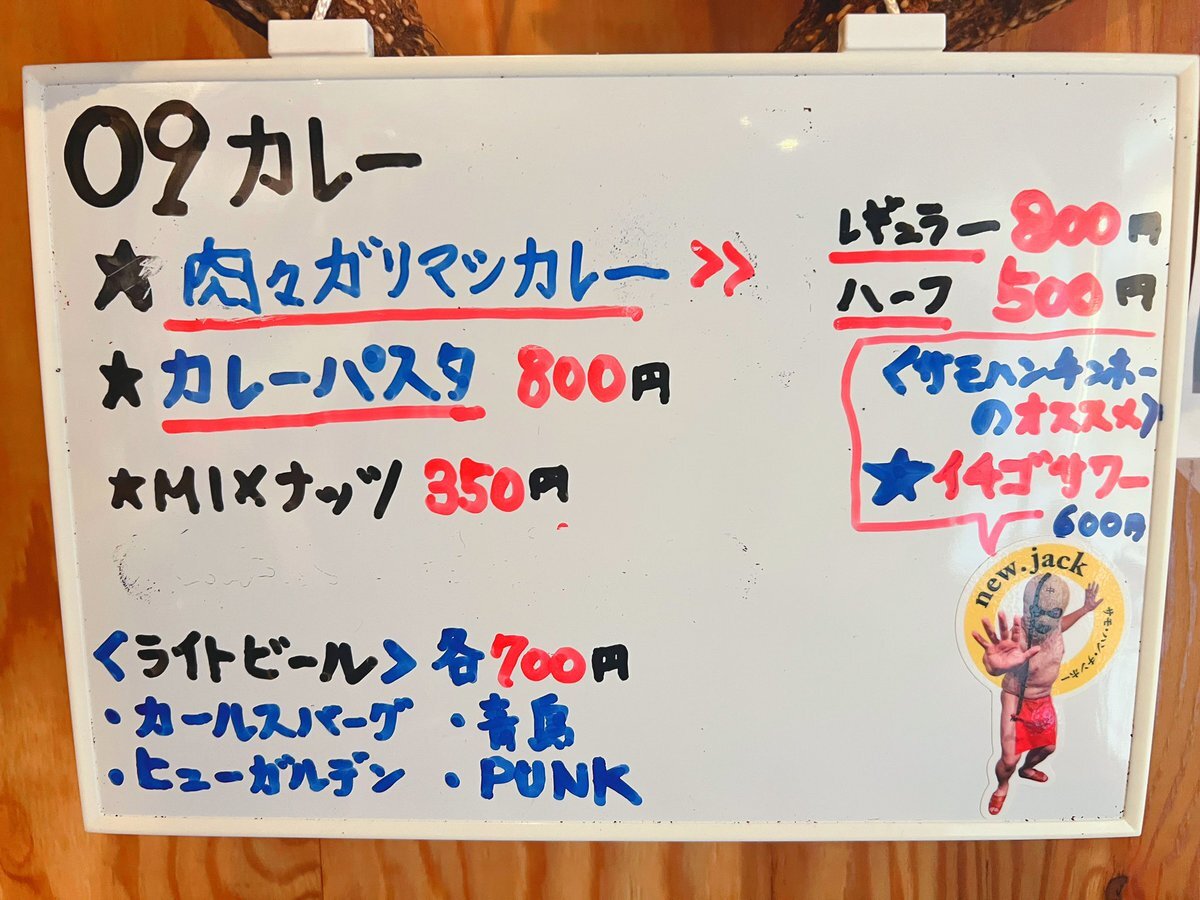 09カレー
★ 肉々ガリマッシカレー >>
レギュラー 800円
ハーフ 500円
★カレーパスタ 800円
★MIXナッツ 350円
<サモハンチンホー
のオススメ>
★イチゴサワー
600円
<ライトビール> 各700円
・カールスバーグ ・青島
・ヒューガルデン ・PUNK
new.jack
サモ・ハン・チンホー